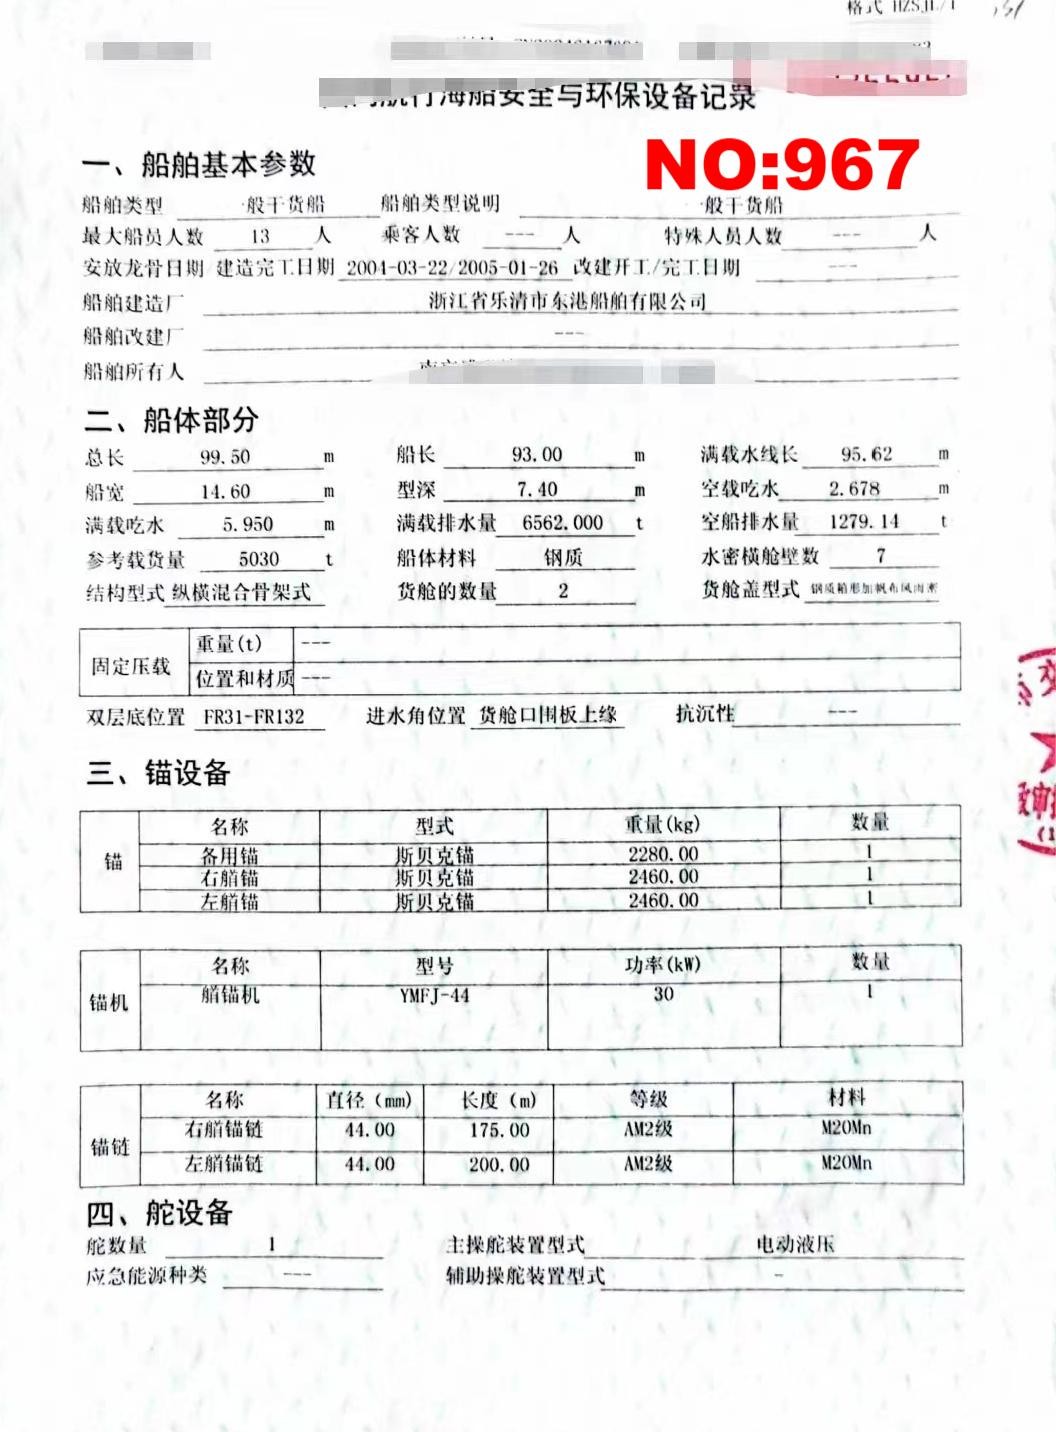 格式 HZSJL/1
航行海船安全与环保设备记录
NO:967
一、船舶基本参数
船舶类型 一般干货船 船舶类型说明 一般干货船
最大船员人数 13 人 乘客人数 --- 人 特殊人员人数 --- 人
安放龙骨日期/建造完工日期 2004-03-22/2005-01-26 改建开工/完工日期 ---
船舶建造厂 浙江省乐清市东港船舶有限公司
船舶改建厂 ---
船舶所有人
二、船体部分
总长 99.50 m 船长 93.00 m 满载水线长 95.62 m
船宽 14.60 m 型深 7.40 m 空载吃水 2.678 m
满载吃水 5.950 m 满载排水量 6562.000 t 空船排水量 1279.14 t
参考载货量 5030 t 船体材料 钢质 水密横舱壁数 7
结构型式 纵横混合骨架式 货舱的数量 2 货舱盖型式 钢质箱形加帆布风雨密
固定压载 重量(t) ---
位置和材质 ---
双层底位置 FR31-FR132 进水角位置 货舱口围板上缘 抗沉性 ---
三、锚设备
锚 名称 型式 重量(kg) 数量
备用锚 斯贝克锚 2280.00 1
右艏锚 斯贝克锚 2460.00 1
左艏锚 斯贝克锚 2460.00 1
锚机 名称 型号 功率(kW) 数量
艏锚机 YMFJ-44 30 1
锚链 名称 直径 (mm) 长度 (m) 等级 材料
右艏锚链 44.00 175.00 AM2级 M20Mn
左艏锚链 44.00 200.00 AM2级 M20Mn
四、舵设备
舵数量 1 主操舵装置型式 电动液压
应急能源种类 --- 辅助操舵装置型式 -